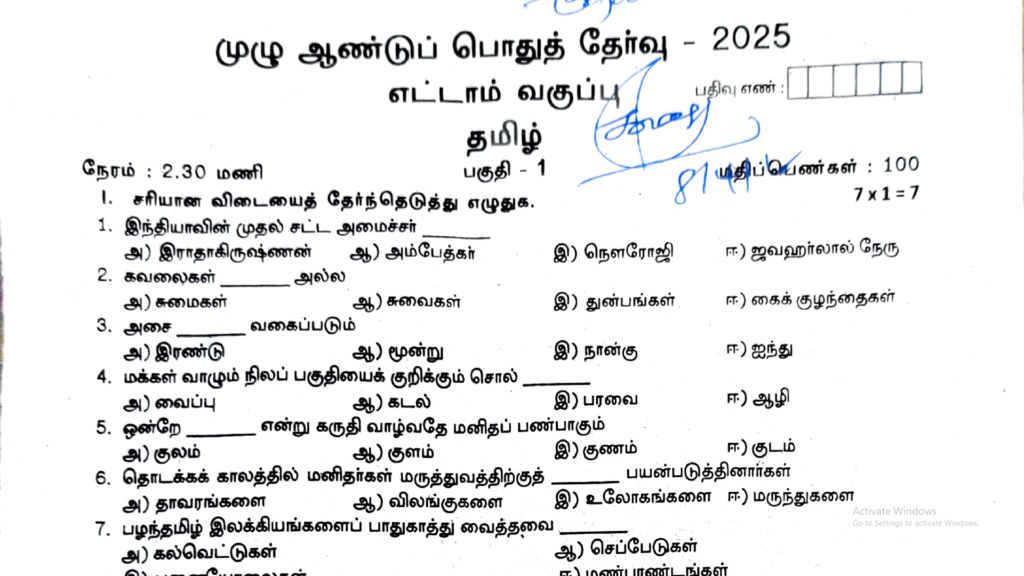 முழு ஆண்டுப் பொதுத் தேர்வு - 2025
எட்டாம் வகுப்பு
பதிவு எண் :
தமிழ்
நேரம் : 2.30 மணி பகுதி - 1 மதிப்பெண்கள் : 100
I. சரியான விடையைத் தேர்ந்தெடுத்து எழுதுக. 7 x 1 = 7
1. இந்தியாவின் முதல் சட்ட அமைச்சர் ________
அ) இராதாகிருஷ்ணன் ஆ) அம்பேத்கர் இ) நௌரோஜி ஈ) ஜவஹர்லால் நேரு
2. கவலைகள் ________ அல்ல
அ) சுமைகள் ஆ) சுவைகள் இ) துன்பங்கள் ஈ) கைக் குழந்தைகள்
3. அசை ________ வகைப்படும்
அ) இரண்டு ஆ) மூன்று இ) நான்கு ஈ) ஐந்து
4. மக்கள் வாழும் நிலப் பகுதியைக் குறிக்கும் சொல் ________
அ) வைப்பு ஆ) கடல் இ) பரவை ஈ) ஆழி
5. ஒன்றே ________ என்று கருதி வாழ்வதே மனிதப் பண்பாகும்
அ) குலம் ஆ) குளம் இ) குணம் ஈ) குடம்
6. தொடக்கக் காலத்தில் மனிதர்கள் மருத்துவத்திற்குத் ________ பயன்படுத்தினார்கள்
அ) தாவரங்களை ஆ) விலங்குகளை இ) உலோகங்களை ஈ) மருந்துகளை
7. பழந்தமிழ் இலக்கியங்களைப் பாதுகாத்து வைத்தவை ________
அ) கல்வெட்டுகள் ஆ) செப்பேடுகள்
Activate Windows
Go to Settings to activate Windows.